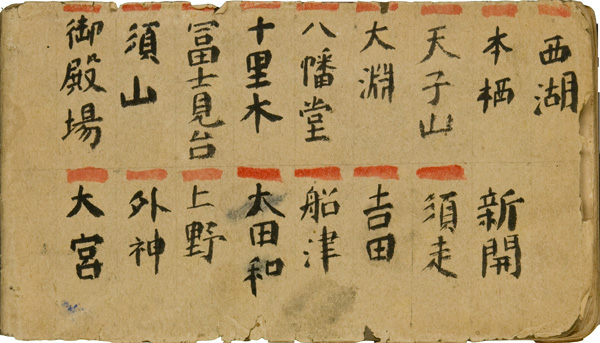 西湖
本栖
天子山
大淵
八幡堂
十里木
冨士見台
須山
御殿場
新開
須走
吉田
船津
大田和
上野
外神
大宮